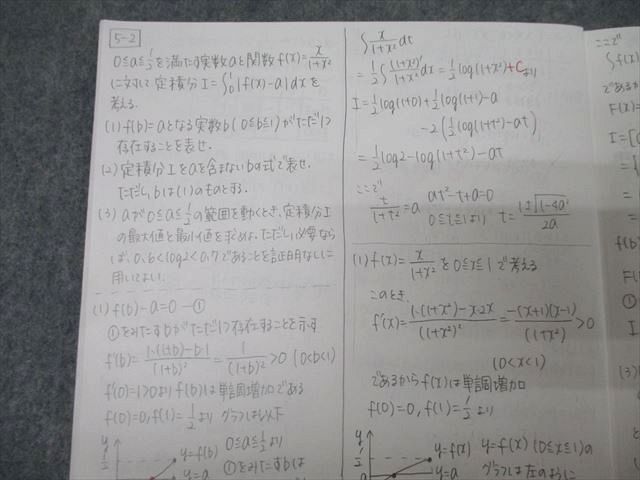 5-2
0≦a≦1/2を満たす実数aと関数f(x)=x/(1+x²)
に対して定積分I=∫₀¹|f(x)-a|dxを
考える.
(1) f(b)=aとなる実数b(0≦b≦1)がただ1つ
存在することを表せ.
(2) 定積分Iをaを含まないbの式で表せ.
ただし, bは(1)のものとする.
(3) aが0≦a≦1/2の範囲を動くとき, 定積分I
の最大値と最小値を求めよ. ただし, 必要なら
ば, 0.6<log2<0.7であることを証明なしに
用いてよい.
(1) f(b)-a=0 -①
①をみたすbがただ1つ存在することを示す
f'(b)=(1・(1+b)-b・1)/(1+b)²=1/(1+b)²>0 (0<b<1)
f'(0)=1>0よりf(b)は単調増加である
f(0)=0, f(1)=1/2より グラフは以下
y
1/2
y=f(b)
y=a
0≦a≦1/2より
①をみたすbは
∫x/(1+x²)dt
=1/2∫(1+x²)'/(1+x²)dx=1/2log(1+x²)+Cより
I=1/2log(1+0)+1/2log(1+1)-a
-2(1/2log(1+t²)-at)
=1/2log2-log(1+t²)-at
ここで
t/(1+t²)=a
at²-t+a=0
0≦t≦1より t=(1±√(1-4a²))/2a
(1) f(x)=x/(1+x²)を0≦x≦1で考える
このとき,
f'(x)=(1・(1+x²)-x・2x)/(1+x²)²=-(x+1)(x-1)/(1+x²)>0
(0<x<1)
であるからf(x)は単調増加
f(0)=0, f(1)=1/2より
y
1/2
a
y=f(x)
y=a
y=f(x) (0≦x≦1)の
グラフは左のように
ここで
∫f(x)
であるか
F(x)=
I=[
=
F(x)
f(b)
①
I
(3)